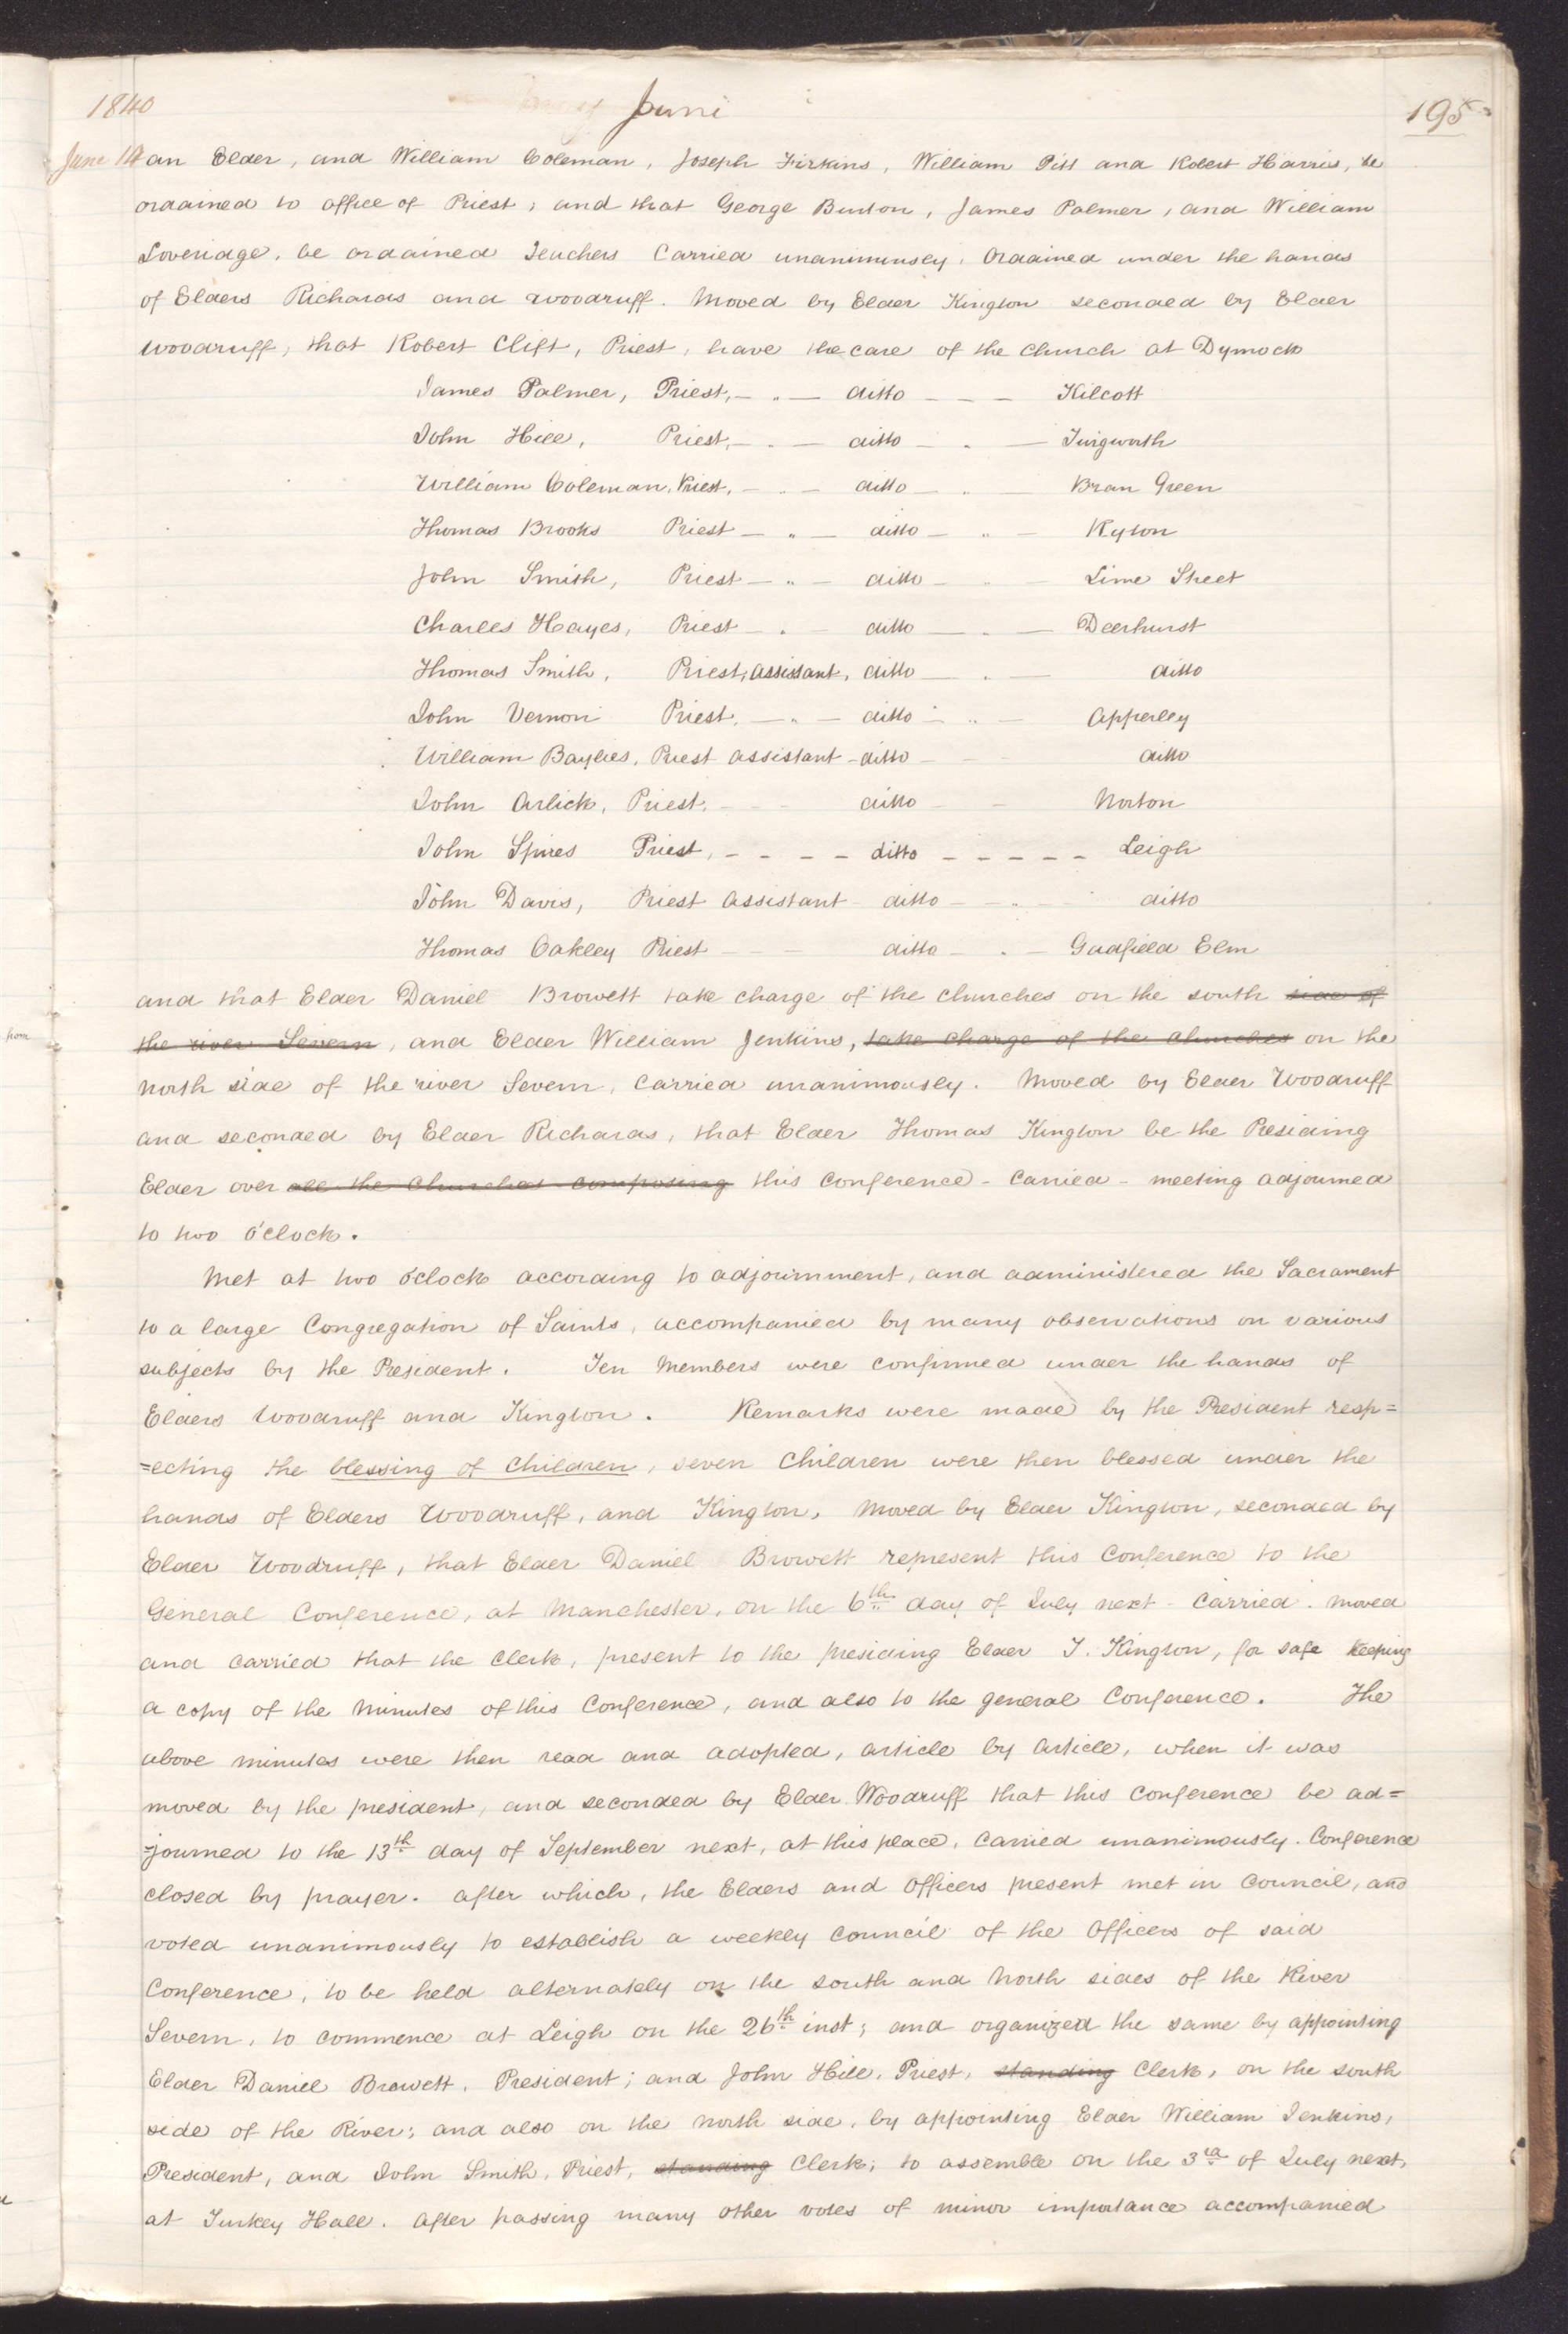 1840 Juni 195
June 14 an Elder, and William Coleman, Joseph Firkins, William Pitt and Robert Harris, be
ordained to office of Priest; and that George Burton, James Palmer, and William
Loveridge, be ordained Teachers Carried unanimously. Ordained under the hands
of Elders Richards and Woodruff. Moved by Elder Kington seconded by Elder
Woodruff, that Robert Clift, Priest, have the care of the Church at Dymock
James Palmer, Priest, — „ — ditto — — — Kilcott
John Hill, Priest, — „ — ditto — „ — Twigworth
William Coleman, Priest, — „ — ditto — „ — Bran Green
Thomas Brooks Priest — „ — ditto — „ — Ryton
John Smith, Priest — „ — ditto — „ — Lime Street
Charles Hayes, Priest — „ — ditto — „ — Deerhurst
Thomas Smith, Priest, assistant, ditto — „ — ditto
John Vernon Priest, — „ — ditto — „ — Apperley
William Baylies, Priest assistant - ditto — — ditto
John Arlick, Priest, — — ditto — — Norton
John Spires Priest, - - - - ditto - - - - - Leigh
John Davis, Priest assistant - ditto — „ — ditto
Thomas Oakley Priest — — ditto — „ — Gadfield Elm
and that Elder Daniel Browett take charge of the churches on the south side of
the river Severn, and Elder William Jenkins, take charge of the churches on the
north side of the river Severn, carried unanimously. Moved by Elder Woodruff
and seconded by Elder Richards, that Elder Thomas Kington be the Presiding
Elder over all the churches composing this conference - carried - meeting adjourned
to two o'clock.
Met at two o'clock according to adjournment, and administered the Sacrament
to a large Congregation of Saints, accompanied by many observations on various
subjects by the President. Ten Members were confirmed under the hands of
Elders Woodruff and Kington. Remarks were made by the President resp=
=ecting the blessing of Children, seven Children were then blessed under the
hands of Elders Woodruff, and Kington, Moved by Elder Kington, seconded by
Elder Woodruff, that Elder Daniel Browett represent this Conference to the
General Conference, at Manchester, on the 6th day of July next - carried. Moved
and carried that the Clerk, present to the presiding Elder T. Kington, for safe keeping
a copy of the Minutes of this Conference, and also to the general Conference. The
above minutes were then read and adopted, article by article, when it was
moved by the president, and seconded by Elder Woodruff that this conference be ad=
=journed to the 13th day of September next, at this place, carried unanimously. Conference
closed by prayer. after which, the Elders and Officers present met in Council, and
voted unanimously to establish a weekly council of the Officers of said
Conference, to be held alternately on the south and North sides of the River
Severn, to commence at Leigh on the 26th inst; and organized the same by appointing
Elder Daniel Browett, President; and John Hill, Priest, standing Clerk, on the south
side of the River; and also on the north side, by appointing Elder William Jenkins,
President, and John Smith, Priest, standing Clerk; to assemble on the 3rd of July next,
at Turkey Hall. After passing many other votes of minor importance accompanied